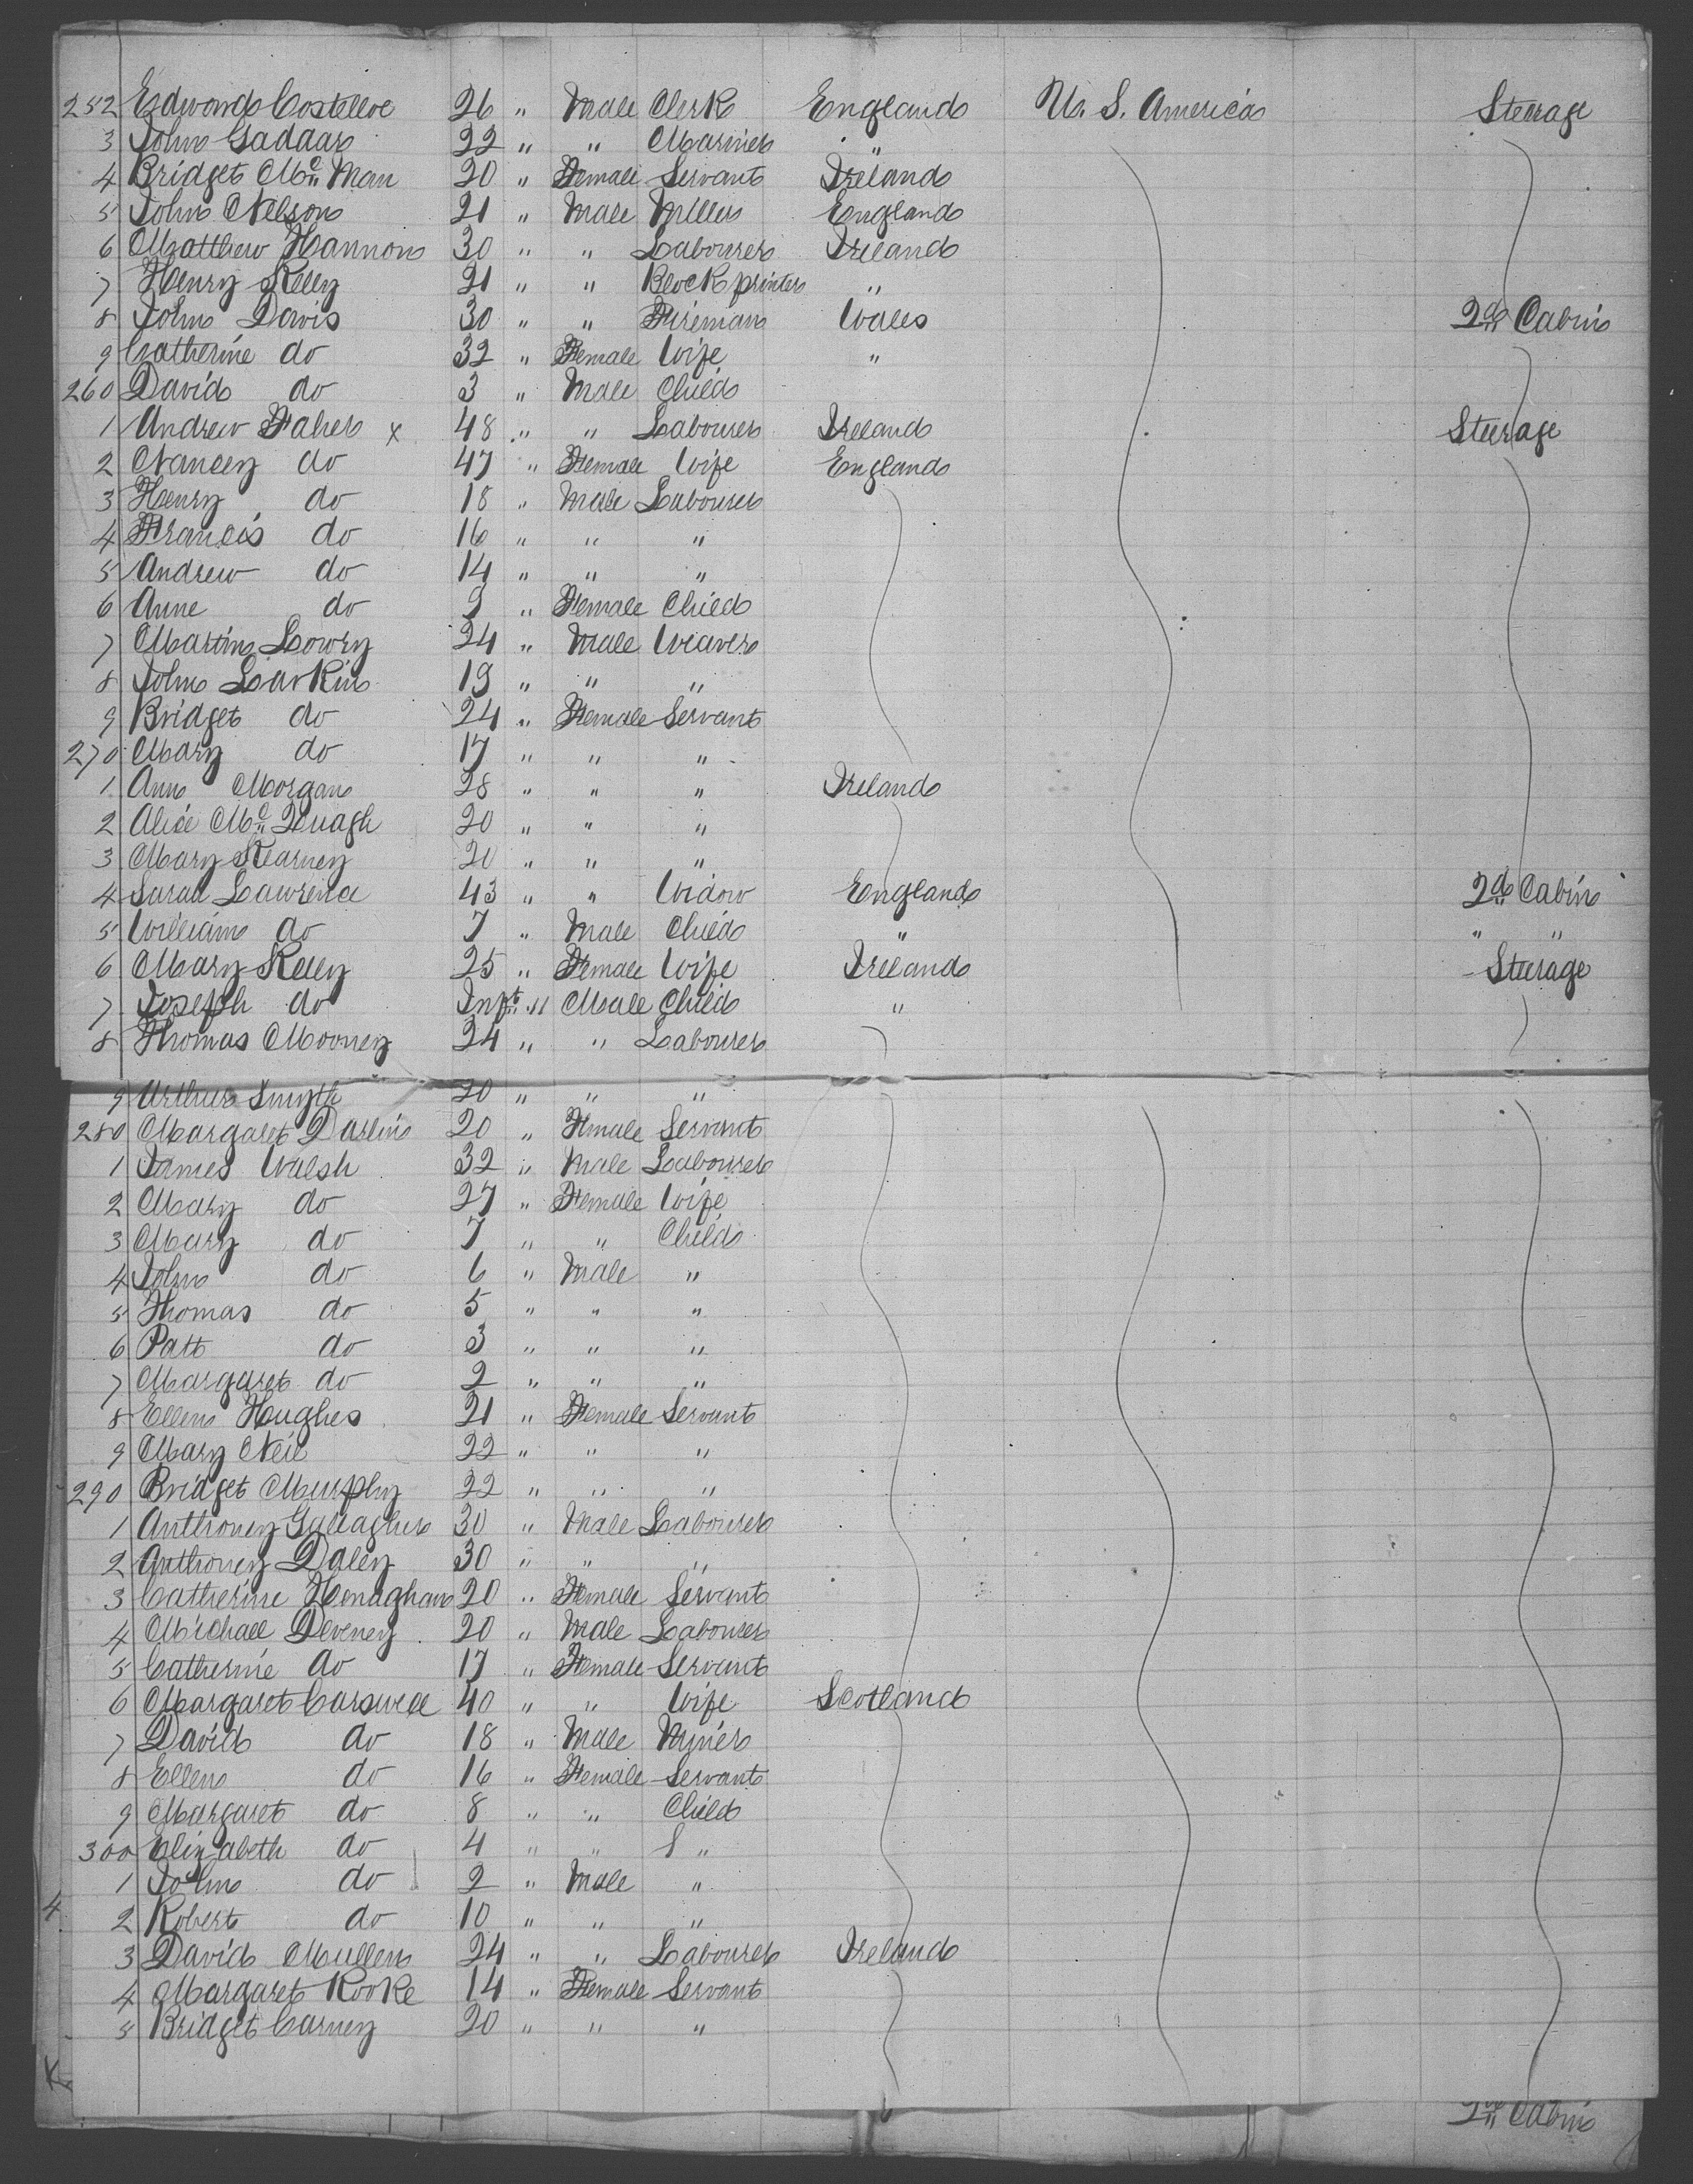 252 Edward Costelloe 26 " Male Clerk England U. S. America Steerage
3 John Gaddar 22 " " Mariner "
4 Bridget Mc Man 20 " Female Servant Ireland
5 John Nelson 21 " Male Miller England
6 Matthew Hannon 30 " " Labourer Ireland
7 Henry Kelly 21 " " Block printer "
8 John Davis 30 " " Fireman Wales 2nd Cabin
9 Catherine do 32 " Female Wife "
260 David do 3 " Male Child
1 Andrew Faher x 48 " " Labourer Ireland Steerage
2 Nancy do 47 " Female Wife England
3 Henry do 18 " Male Labourer
4 Francis do 16 " " "
5 Andrew do 14 " " "
6 Anne do 9 " Female Child
7 Martin Lowry 24 " Male Weaver
8 John Larkin 19 " " "
9 Bridget do 24 " Female Servant
270 Mary do 17 " " "
1 Ann Morgan 28 " " " Ireland
2 Alice Mc 20 " " "
3 Mary Kearney 20 " " "
4 Sarah Lawrence 43 " " Widow England 2d Cabin
5 William do 7 " Male Child " " "
6 Mary Kelly 25 " Female Wife Ireland Steerage
7 Joseph do Inft " Male Child "
8 Thomas Mooney 24 " " Labourer
9 Arthur Smyth 20 " " "
280 Margaret Darlin 20 " Female Servant
1 James Walsh 32 " Male Labourer
2 Mary do 27 " Female Wife
3 Mary do 7 " " Child
4 John do 6 " Male "
5 Thomas do 5 " " "
6 Patt do 3 " " "
7 Margaret do 2 " " "
8 Ellen Hughes 21 " Female Servant
9 Mary Neil 22 " " "
290 Bridget Murphy 22 " " "
1 Anthoney Gallagher 30 " Male Labourer
2 Anthoney Daley 30 " " "
3 Catherine Henaghan 20 " Female Servant
4 Michael Deveney 20 " Male Labourer
5 Catherine do 17 " Female Servant
6 Margaret Carswell 40 " " Wife Scotland
7 David do 18 " Male Miner
8 Ellen do 16 " Female Servant
9 Margaret do 8 " " Child
300 Elizabeth do 4 " " "
1 John do 2 " Male "
2 Robert do 10 " " "
3 David Mullen 24 " " Labourer Ireland
4 Margaret Rooke 14 " Female Servant
5 Bridget Carney 20 " " "
2nd Cabin